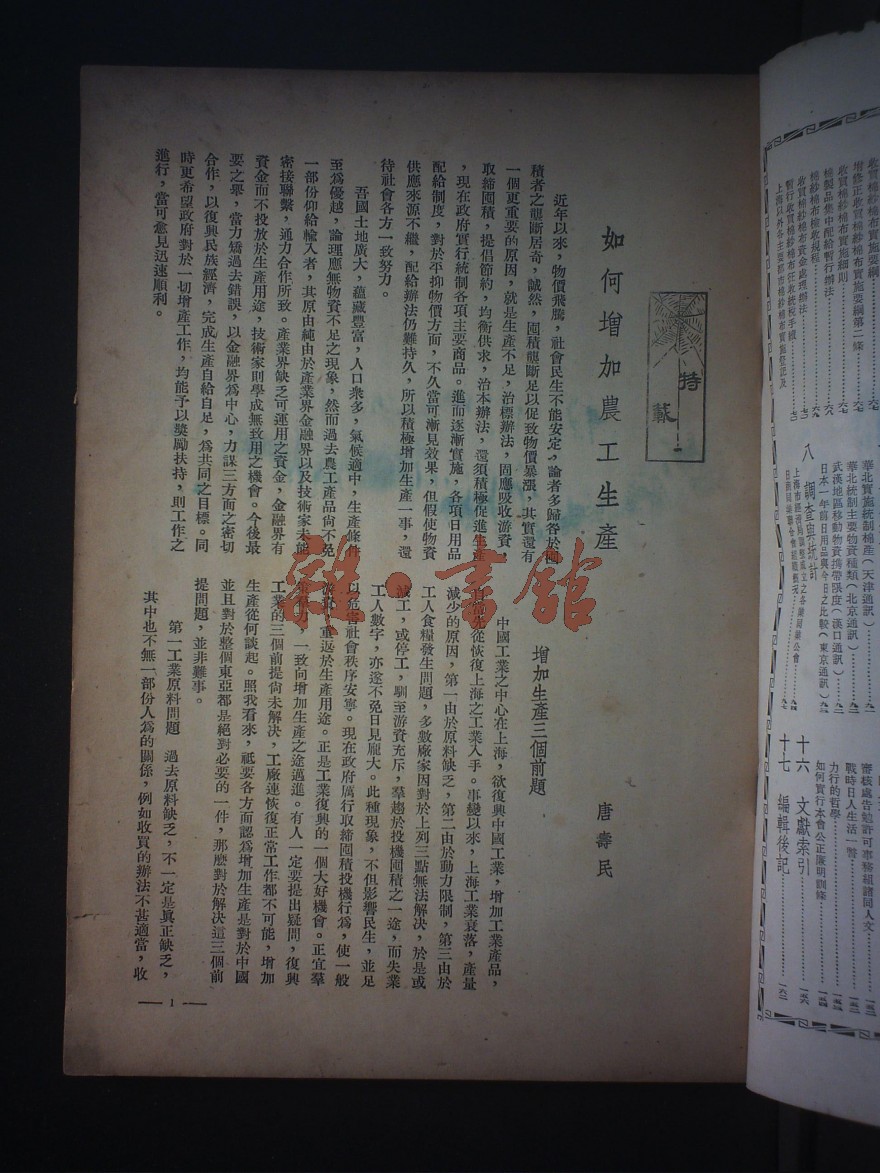 特載
如何增加農工生產
唐壽民
近年以來，物價飛騰，社會民生不能安定，論者多歸咎於囤
積者之壟斷居奇，誠然，囤積壟斷足以促致物價暴漲，其實還有
一個更重要的原因，就是生產不足，治標辦法，固應吸收游資，
取締囤積，提倡節約，均衡供求，治本辦法，還須積極促進生產
，現在政府實行統制各項主要商品。進而逐漸實施，各項日用品
配給制度，對於平抑物價方面，不久當可漸見效果，但假使物資
供應來源不繼，配給辦法仍難持久，所以積極增加生產一事，還
待社會各方一致努力。
吾國土地廣大，蘊藏豐富，人口衆多，氣候適中，生產條件
至爲優越，論理應無物資不足之現象，然而過去農工產品尙不免
一部份仰給輸入者，其原由純由於產業界金融界以及技術家未能
密接聯繫，通力合作所致。產業界缺乏可運用之資金，金融界有
資金而不投放於生產用途，技術家則學成無致用之機會。今後最
要之舉，當力矯過去錯誤，以金融界爲中心，力謀三方面之密切
合作，以復興民族經濟，完成生產自給自足，爲共同之目標。同
時更希望政府對於一切增產工作，均能予以獎勵扶持，則工作之
進行，當可愈見迅速順利。
增加生產三個前題
中國工業之中心在上海，欲復興中國工業，增加工業產品，
自當先從恢復上海之工業入手。事變以來，上海工業衰落，產量
減少的原因，第一由於原料缺乏，第二由於動力限制，第三由於
工人食糧發生問題，多數廠家因對於上列三點無法解決，於是或
減工，或停工，馴至游資充斥，羣趨於投機囤積之一途，而失業
工人數字，亦遂不免日見龐大。此種現象，不但影響民生，並足
以危害社會秩序安寧。現在政府厲行取締囤積投機行爲，使一般
游資，重返於生產用途。正是工業復興的一個大好機會。正宜羣
策羣力，一致向增加生產之途邁進。有人一定要提出疑問，復興
工業的三個前提尙未解決，工廠連恢復正常工作都不可能，增加
生產從何談起。照我看來，祇要各方面認爲增加生產是對於中國
並且對於整個東亞都是絕對必要的一件，那麽對於解決這三個前
提問題，並非難事。
第一工業原料問題　過去原料缺乏，不一定是眞正缺乏，
其中也不無一部份人爲的關係，例如收買的辦法不甚適當，收
— 1 —
收買棉紗棉布實施要綱……六七
增修正收買棉紗棉布實施要綱第二條……六七
收買棉紗棉布實施細則……六七
棉製品集中配給暫行辦法……六八
棉紗棉布檢查規程
收買棉紗棉布資金處理辦法
暫行收買棉紗棉布征收統稅手續
上海以外各主要都市棉紗棉布實施登記及
華北實施統制棉產（天津通訊）……九一
華北統制主要物資種類（北京通訊）……九一
武漢地區移動物資携帶限度（漢口通訊）……九二
日本一年前日用品與今日之比較（東京通訊）……九二
八　調查與統計
審核處告勉許可事務組諸同人文……一五二
戰時日人生活一瞥……一五三
力行的哲學……一五四
如何實行本會公正廉明訓條……一五五
十六　文獻索引……一五六
十七　編輯後記……一六二
雜·書館